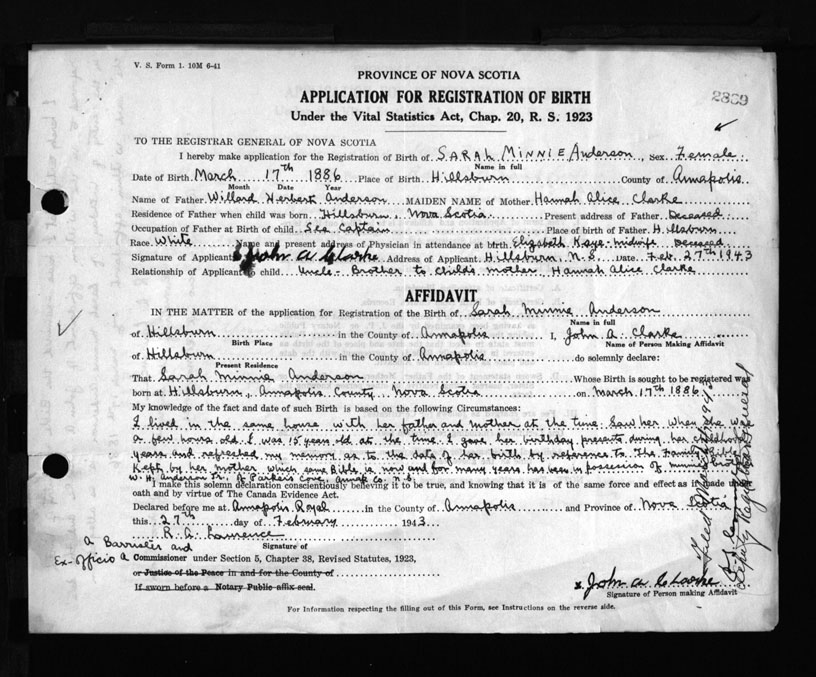 V. S. Form 1. 10M 6-41
PROVINCE OF NOVA SCOTIA
APPLICATION FOR REGISTRATION OF BIRTH
2869
Under the Vital Statistics Act, Chap. 20, R. S. 1923
TO THE REGISTRAR GENERAL OF NOVA SCOTIA
I hereby make application for the Registration of Birth of SARAH MINNIE Anderson, Sex Female
Name in full
Date of Birth March 17th 1886 Place of Birth Hillsburn County of Annapolis
Month Date Year
Name of Father Willard Herbert Anderson MAIDEN NAME of Mother Hannah Alice Clarke
Residence of Father when child was born Hillsburn, Nova Scotia Present address of Father Deceased
Occupation of Father at Birth of child Sea Captain Place of birth of Father Hillsburn
Race White Name and present address of Physician in attendance at birth Elizabeth Kaye - midwife deceased
Signature of Applicant John A Clarke Address of Applicant Hillsburn, N.S. Date Feb. 27th 1943
Relationship of Applicant to child Uncle - Brother to child's mother, Hannah Alice Clarke
AFFIDAVIT
IN THE MATTER of the application for Registration of the Birth of Sarah Minnie Anderson
Name in full
of Hillsburn in the County of Annapolis I, John A. Clarke
Birth Place Name of Person Making Affidavit
of Hillsburn in the County of Annapolis do solemnly declare:
Present Residence
That Sarah Minnie Anderson Whose Birth is sought to be registered was
born at Hillsburn, Annapolis County, Nova Scotia on March 17th 1886
My knowledge of the fact and date of such Birth is based on the following Circumstances:
I lived in the same house with her father and mother at the time. Saw her when she was
a few hours old. I was 15 years old at the time. I gave her birthday presents during her childhood
years and refreshed my memory as to the date of her birth by reference to the Family Bible
Kept by her mother which same Bible is now and for many years has been in possession of
W. H. Anderson Jr., of Parkers Cove, Annap. Co. N.S.
I make this solemn declaration conscientiously believing it to be true, and knowing that it is of the same force and effect as if made under
oath and by virtue of The Canada Evidence Act.
Declared before me at Annapolis Royal in the County of Annapolis and Province of Nova Scotia
this 27th day of February 1943
R. A. Lawrence
Signature of
a Barrister and
Ex-Officio a Commissioner under Section 5, Chapter 38, Revised Statutes, 1923,
or Justice of the Peace in and for the County of
If sworn before a Notary Public affix seal.
John A Clarke
Signature of Person making Affidavit
For Information respecting the filling out of this Form, see Instructions on the reverse side.
Filed
Deputy Registrar General